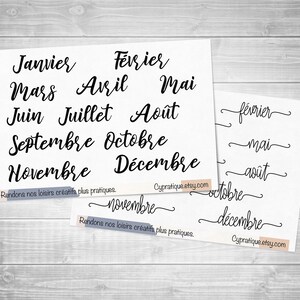 Janvier Février
Mars Avril Mai
Juin Juillet Août
Septembre Octobre
Novembre Décembre
Rendons nos loisirs créatifs plus pratiques.
Cypratique.etsy.com
février
mai
août
octobre
novembre décembre
Rendons nos loisirs créatifs plus pratiques.
Cypratique.etsy.com